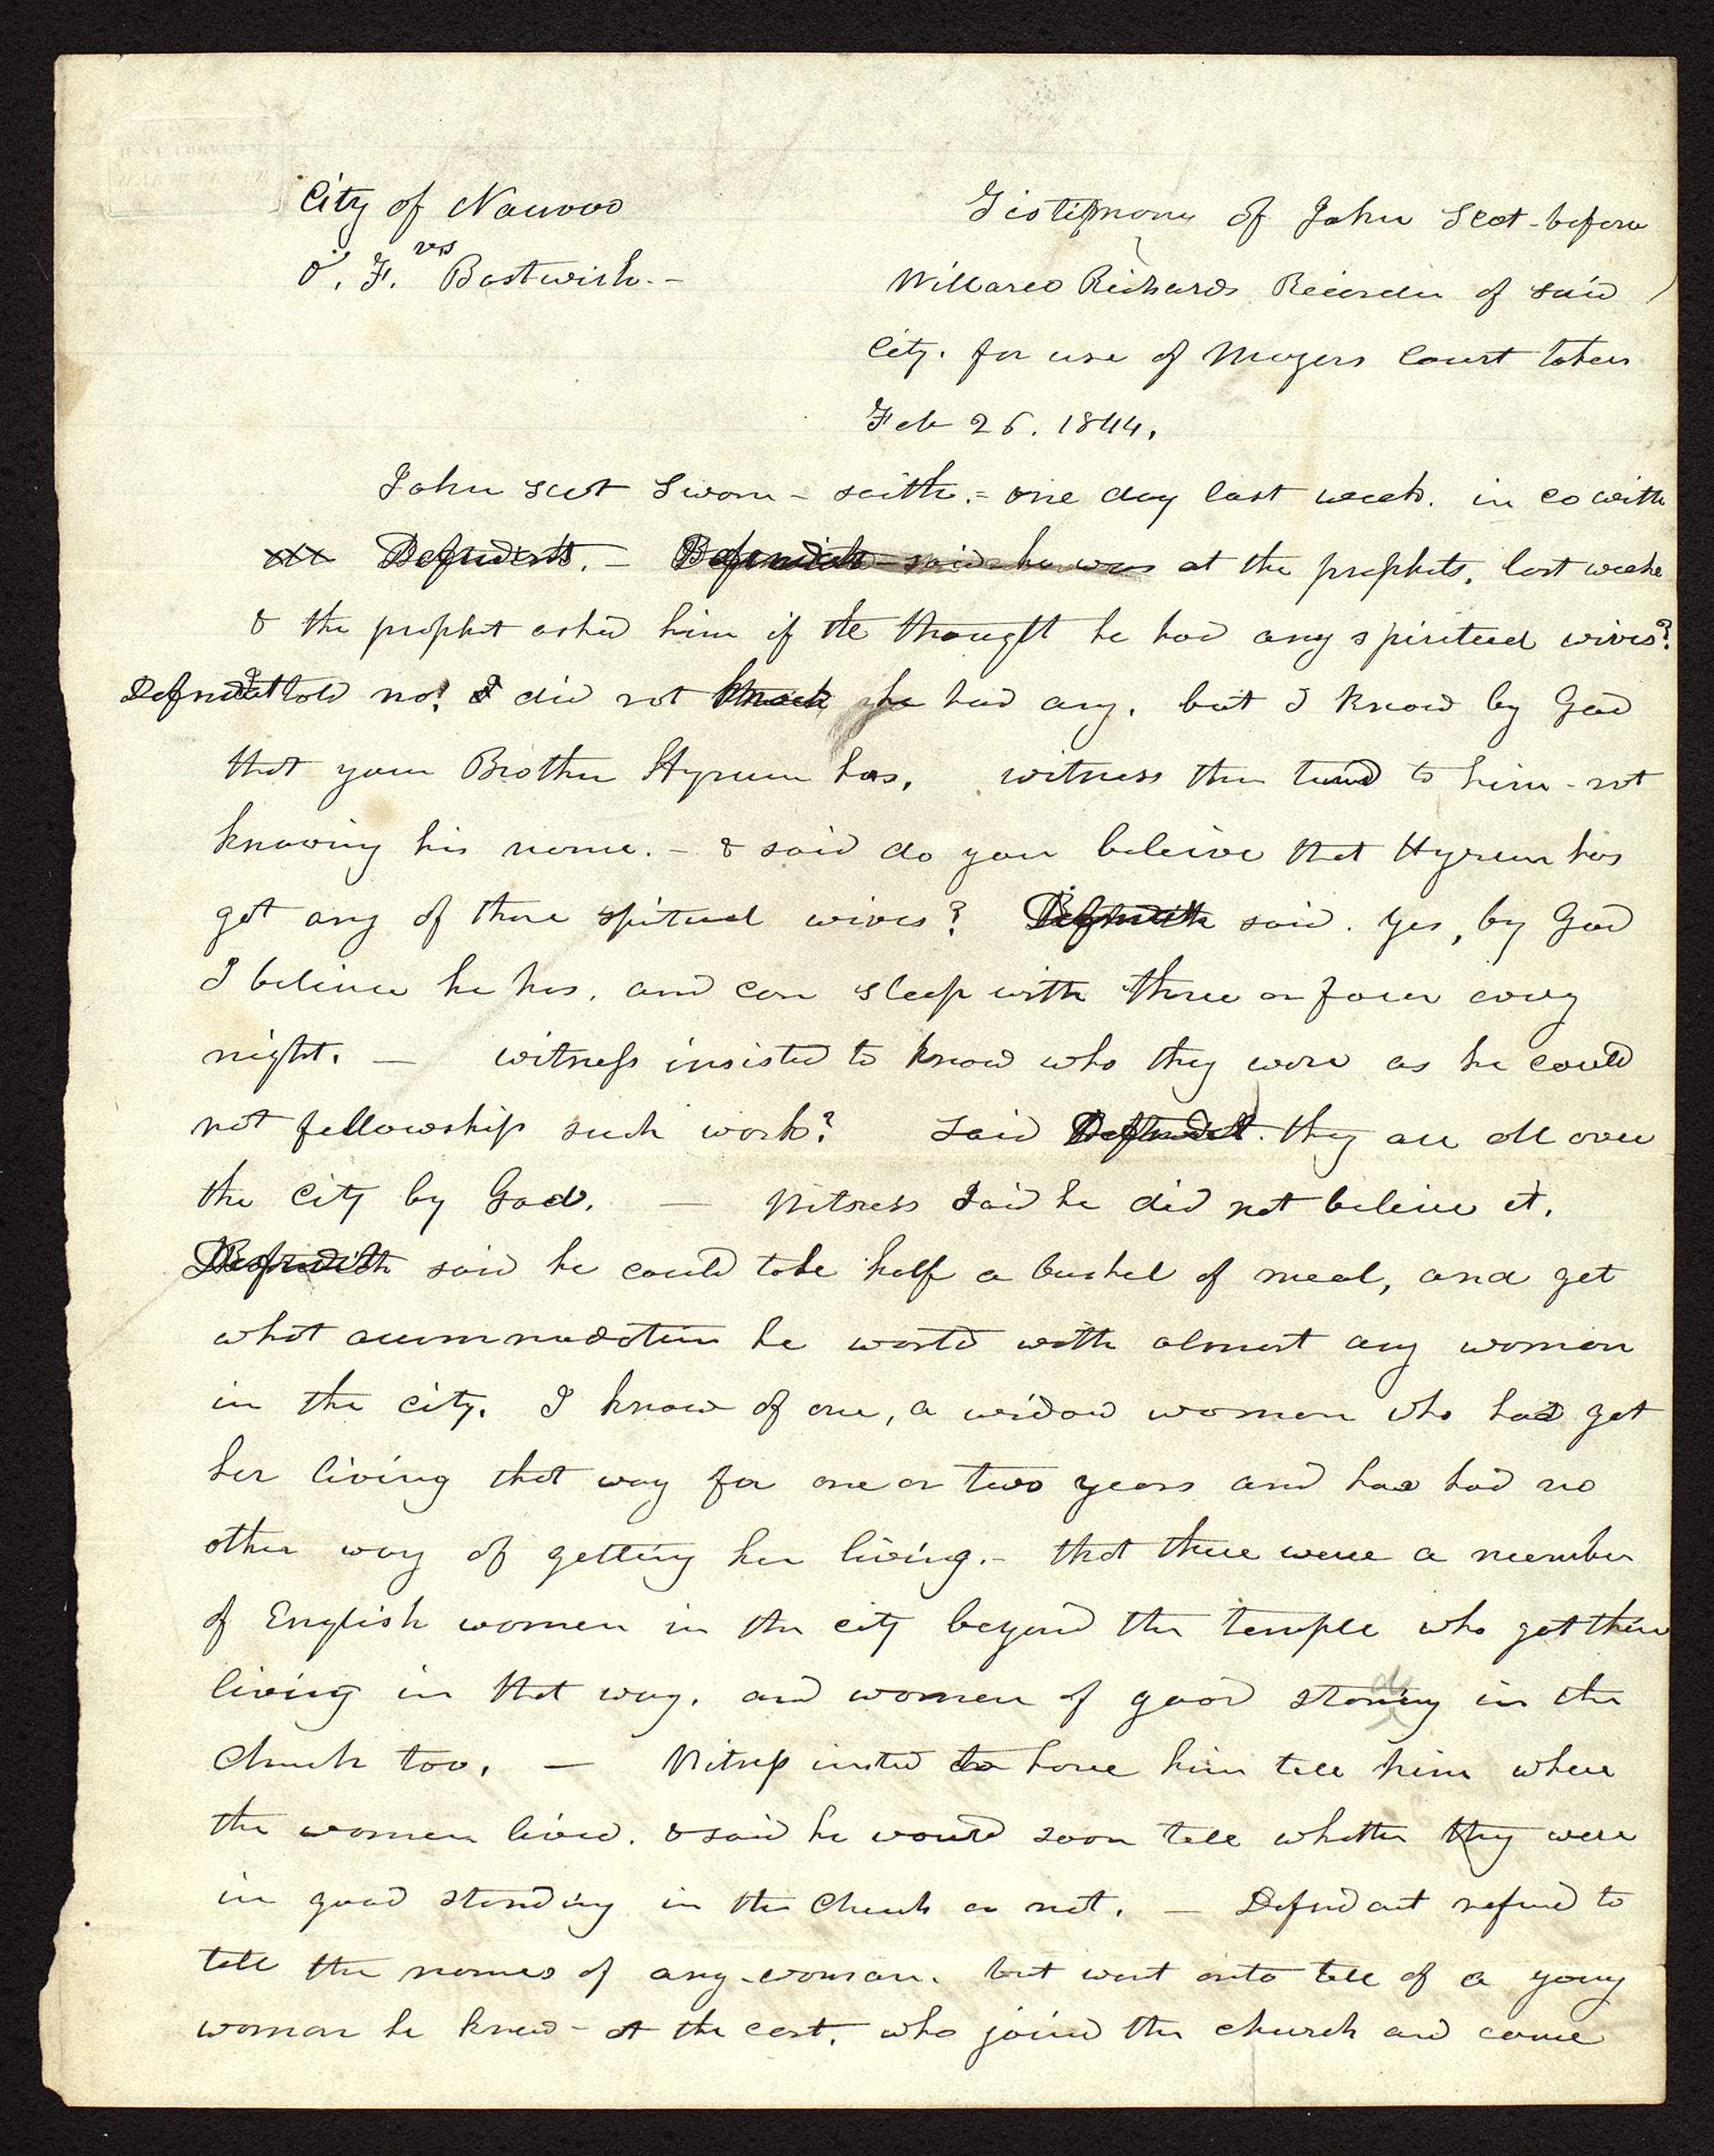 City of Nauvoo
vs
O. F. Bostwick. -
Testimony of John Scot - before
Willard Richards Recorder of said
City. for use of Mayors Court taken
Feb 26. 1844.
John Scot sworn - saith. - one day last week. in co with
Defendent. - said he was at the prophets, last weeke
& the prophet asked him if he thought he had any spiritual wives?
Defndnt told no! I did not he had any. but I know by God
that your Brother Hyrum has. witness then turnd to him - not
knowing his name. - & said do you beleive that Hyrum has
got any of those spitual wives? said. yes, by God
I believe he has. and can sleep with three or four every
night. - witness insisted to know who they were as he could
not fellowship such work? said Defendnt. they are all over
the City by God. - Witness said he did not beleive it.
said he could take half a bushel of meal, and get
what accummodation he wantd with almost any woman
in the city. I know of one, a widow woman who had got
her living that way for one or two years and has had no
other way of getting her living. - that there were a number
of English women in the city beyond the temple who got their
living in that way. and women of good standing in the
Church too. - Witness insted to have him tell him where
the women lived. & said he would soon tell whether they were
in good standing in the Church or not. - Defndant refused to
tell the names of any - woman. but went onto tell of a young
woman he knew - at the east. who joined the church and came